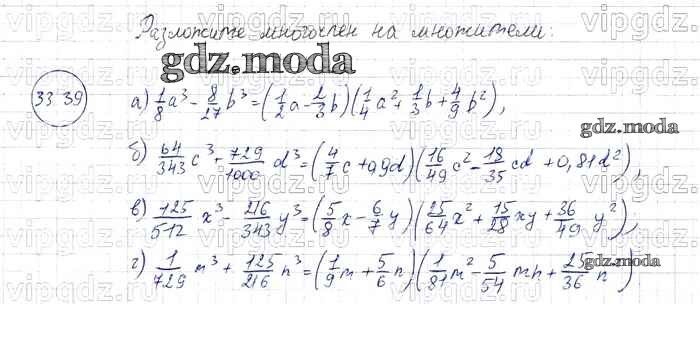 Разложите многочлен на множители:
gdz.moda
33.39
а) 1/8 a³ - 8/27 b³ = (1/2 a - 2/3 b)(1/4 a² + 1/3 b + 4/9 b²),
gdz.moda
б) 64/343 c³ + 729/1000 d³ = (4/7 c + 0,9d)(16/49 c² - 18/35 cd + 0,81d²),
в) 125/512 x³ - 216/343 y³ = (5/8 x - 6/7 y)(25/64 x² + 15/28 xy + 36/49 y²);
г) 1/729 m³ + 125/216 n³ = (1/9 m + 5/6 n)(1/81 m² - 5/54 mn + 25/36 n)
gdz.moda